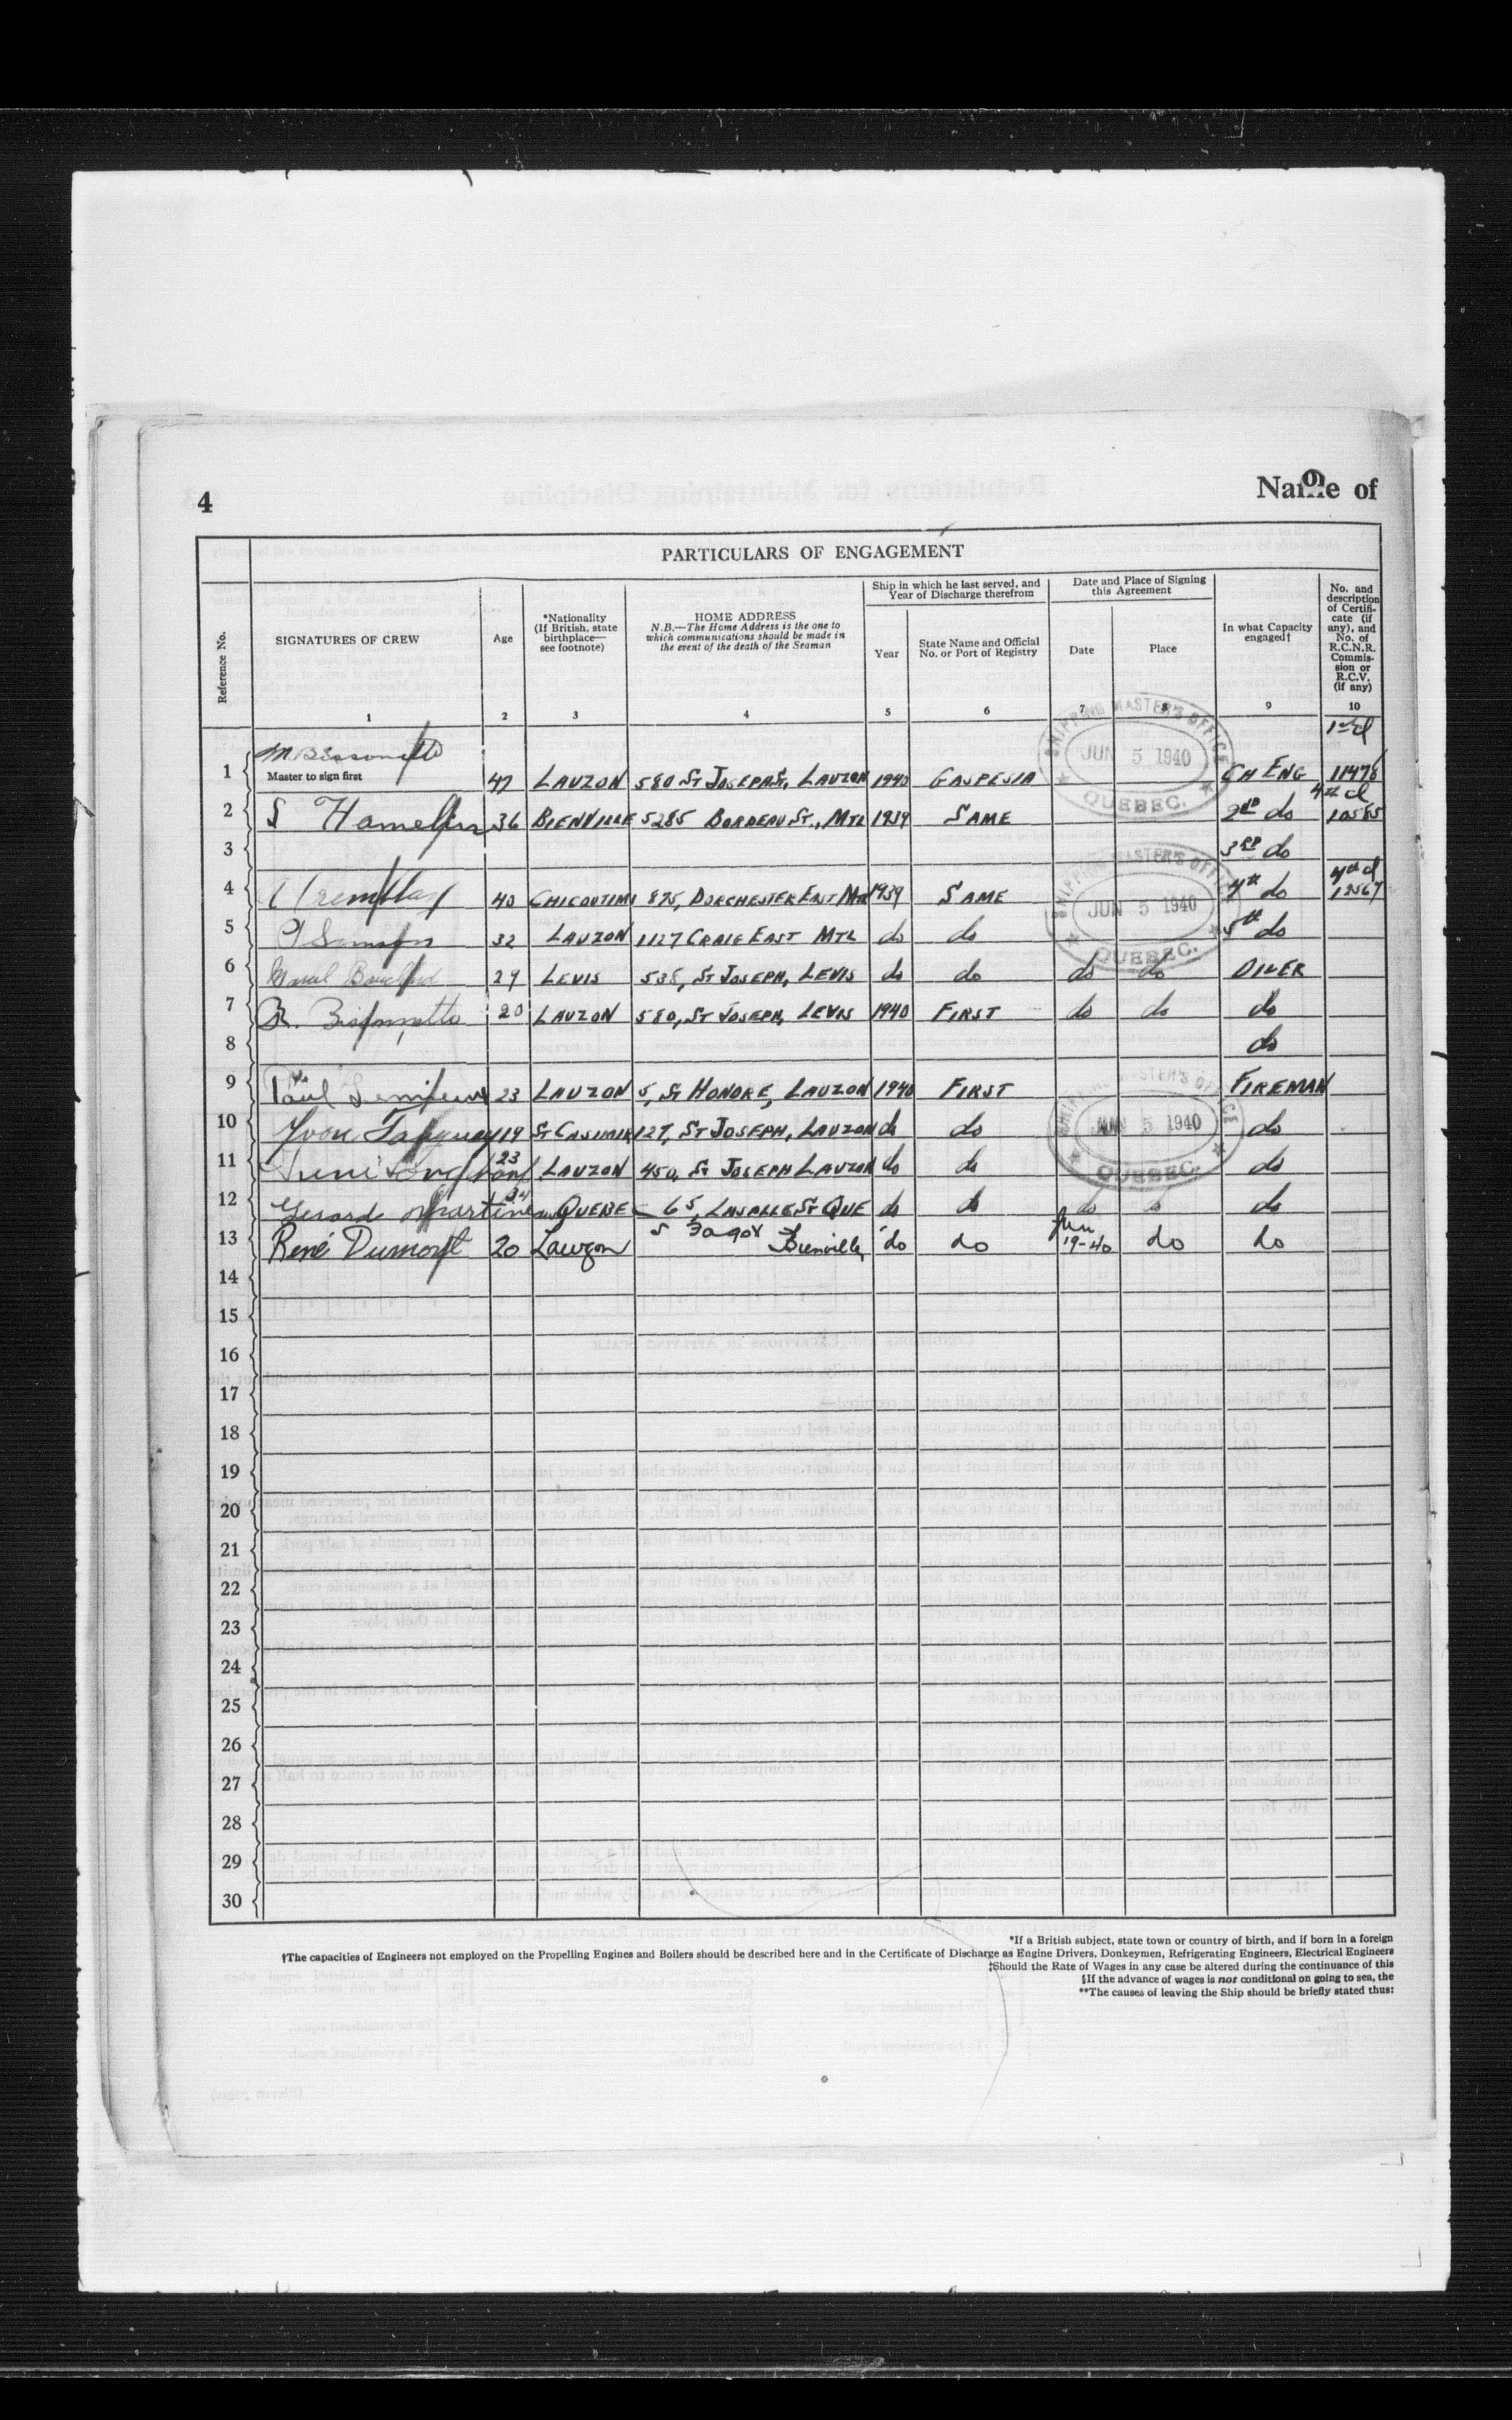 4
Name of
PARTICULARS OF ENGAGEMENT
Reference No.
SIGNATURES OF CREW
Age
*Nationality
(If British, state
birthplace—
see footnote)
HOME ADDRESS
N.B.—The Home Address is the one to
which communications should be made in
the event of the death of the Seaman
Ship in which he last served, and
Year of Discharge therefrom
Year
State Name and Official
No. or Port of Registry
Date and Place of Signing
this Agreement
Date
Place
In what Capacity
engaged†
No. and
description
of Certifi-
cate (if
any), and
No. of
R.C.N.R.
Commis-
sion or
R.C.V.
(if any)
1 2 3 4 5 6 7 8 9 10
SHIPPING MASTER'S OFFICE
JUN 5 1940
QUEBEC.
1st cl
1 M Bissonnette
Master to sign first
47 LAUZON 580 St JOSEPH St, LAUZON 1940 GASPESIA CH ENG 11476
4th cl
2 S Hamelin 36 BIENVILLE 5285 BORDEAU St., MTL 1939 SAME 2ND do 10585
3 3RD do
SHIPPING MASTER'S OFFICE
JUN 5 1940
QUEBEC.
4th cl
4 Tremblay 40 CHICOUTIMI 875, DORCHESTER EAST MTL 1939 SAME 4th do 12567
5 Samson 32 LAUZON 1127 CRAIG EAST MTL do do 5th do
6 29 LEVIS 538, St JOSEPH, LEVIS do do do do OILER
7 R. Bissonnette 20 LAUZON 580, ST JOSEPH, LEVIS 1940 FIRST do do do
8 do
9 Paul Lemieux 23 LAUZON 5, St HONORE, LAUZON 1940 FIRST FIREMAN
SHIPPING MASTER'S OFFICE
JUN 5 1940
QUEBEC.
10 Yvon Tanguay 19 St CASIMIR 127, ST JOSEPH, LAUZON do do do
11 23 LAUZON 450, St JOSEPH LAUZON do do do
12 Gerard Martineau 34 QUEBEC 65, LASALLE St QUE do do do do do
13 René Dumont 20 Lauzon Bienville do do Jun 19-40 do do
14
15
16
17
18
19
20
21
22
23
24
25
26
27
28
29
30
*If a British subject, state town or country of birth, and if born in a foreign
†The capacities of Engineers not employed on the Propelling Engines and Boilers should be described here and in the Certificate of Discharge as Engine Drivers, Donkeymen, Refrigerating Engineers, Electrical Engineers
‡Should the Rate of Wages in any case be altered during the continuance of this
§If the advance of wages is not conditional on going to sea, the
**The causes of leaving the Ship should be briefly stated thus: